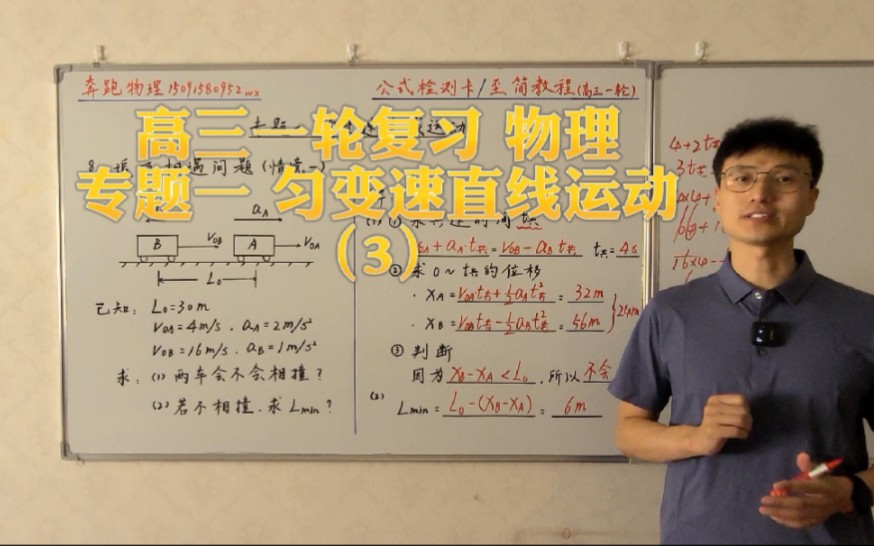 奔跑物理15091580952wx
公式检测卡/至简教程(高三一轮)
高三一轮复习 物理
专题一 匀变速直线运动
(3)
aA
B
VOB
A
VOA
L₀
已知: L₀=30m
VOA=4m/s . aA=2m/s²
VOB=16m/s . aB=1m/s²
求: (1) 两车会不会相撞?
(2) 若不相撞.求Lmin?
VOA+aA·t共=VOB-aB t共 t共=4s
② 求0~t共的位移
· XA=VOAt共+½aAt共²=32m
· XB=VOBt共-½aBt共²=56m
③ 判断
因为 XB-XA<L₀ .所以 不会
(2)
Lmin=L₀-(XB-XA)=6m
4+2t共
3t共